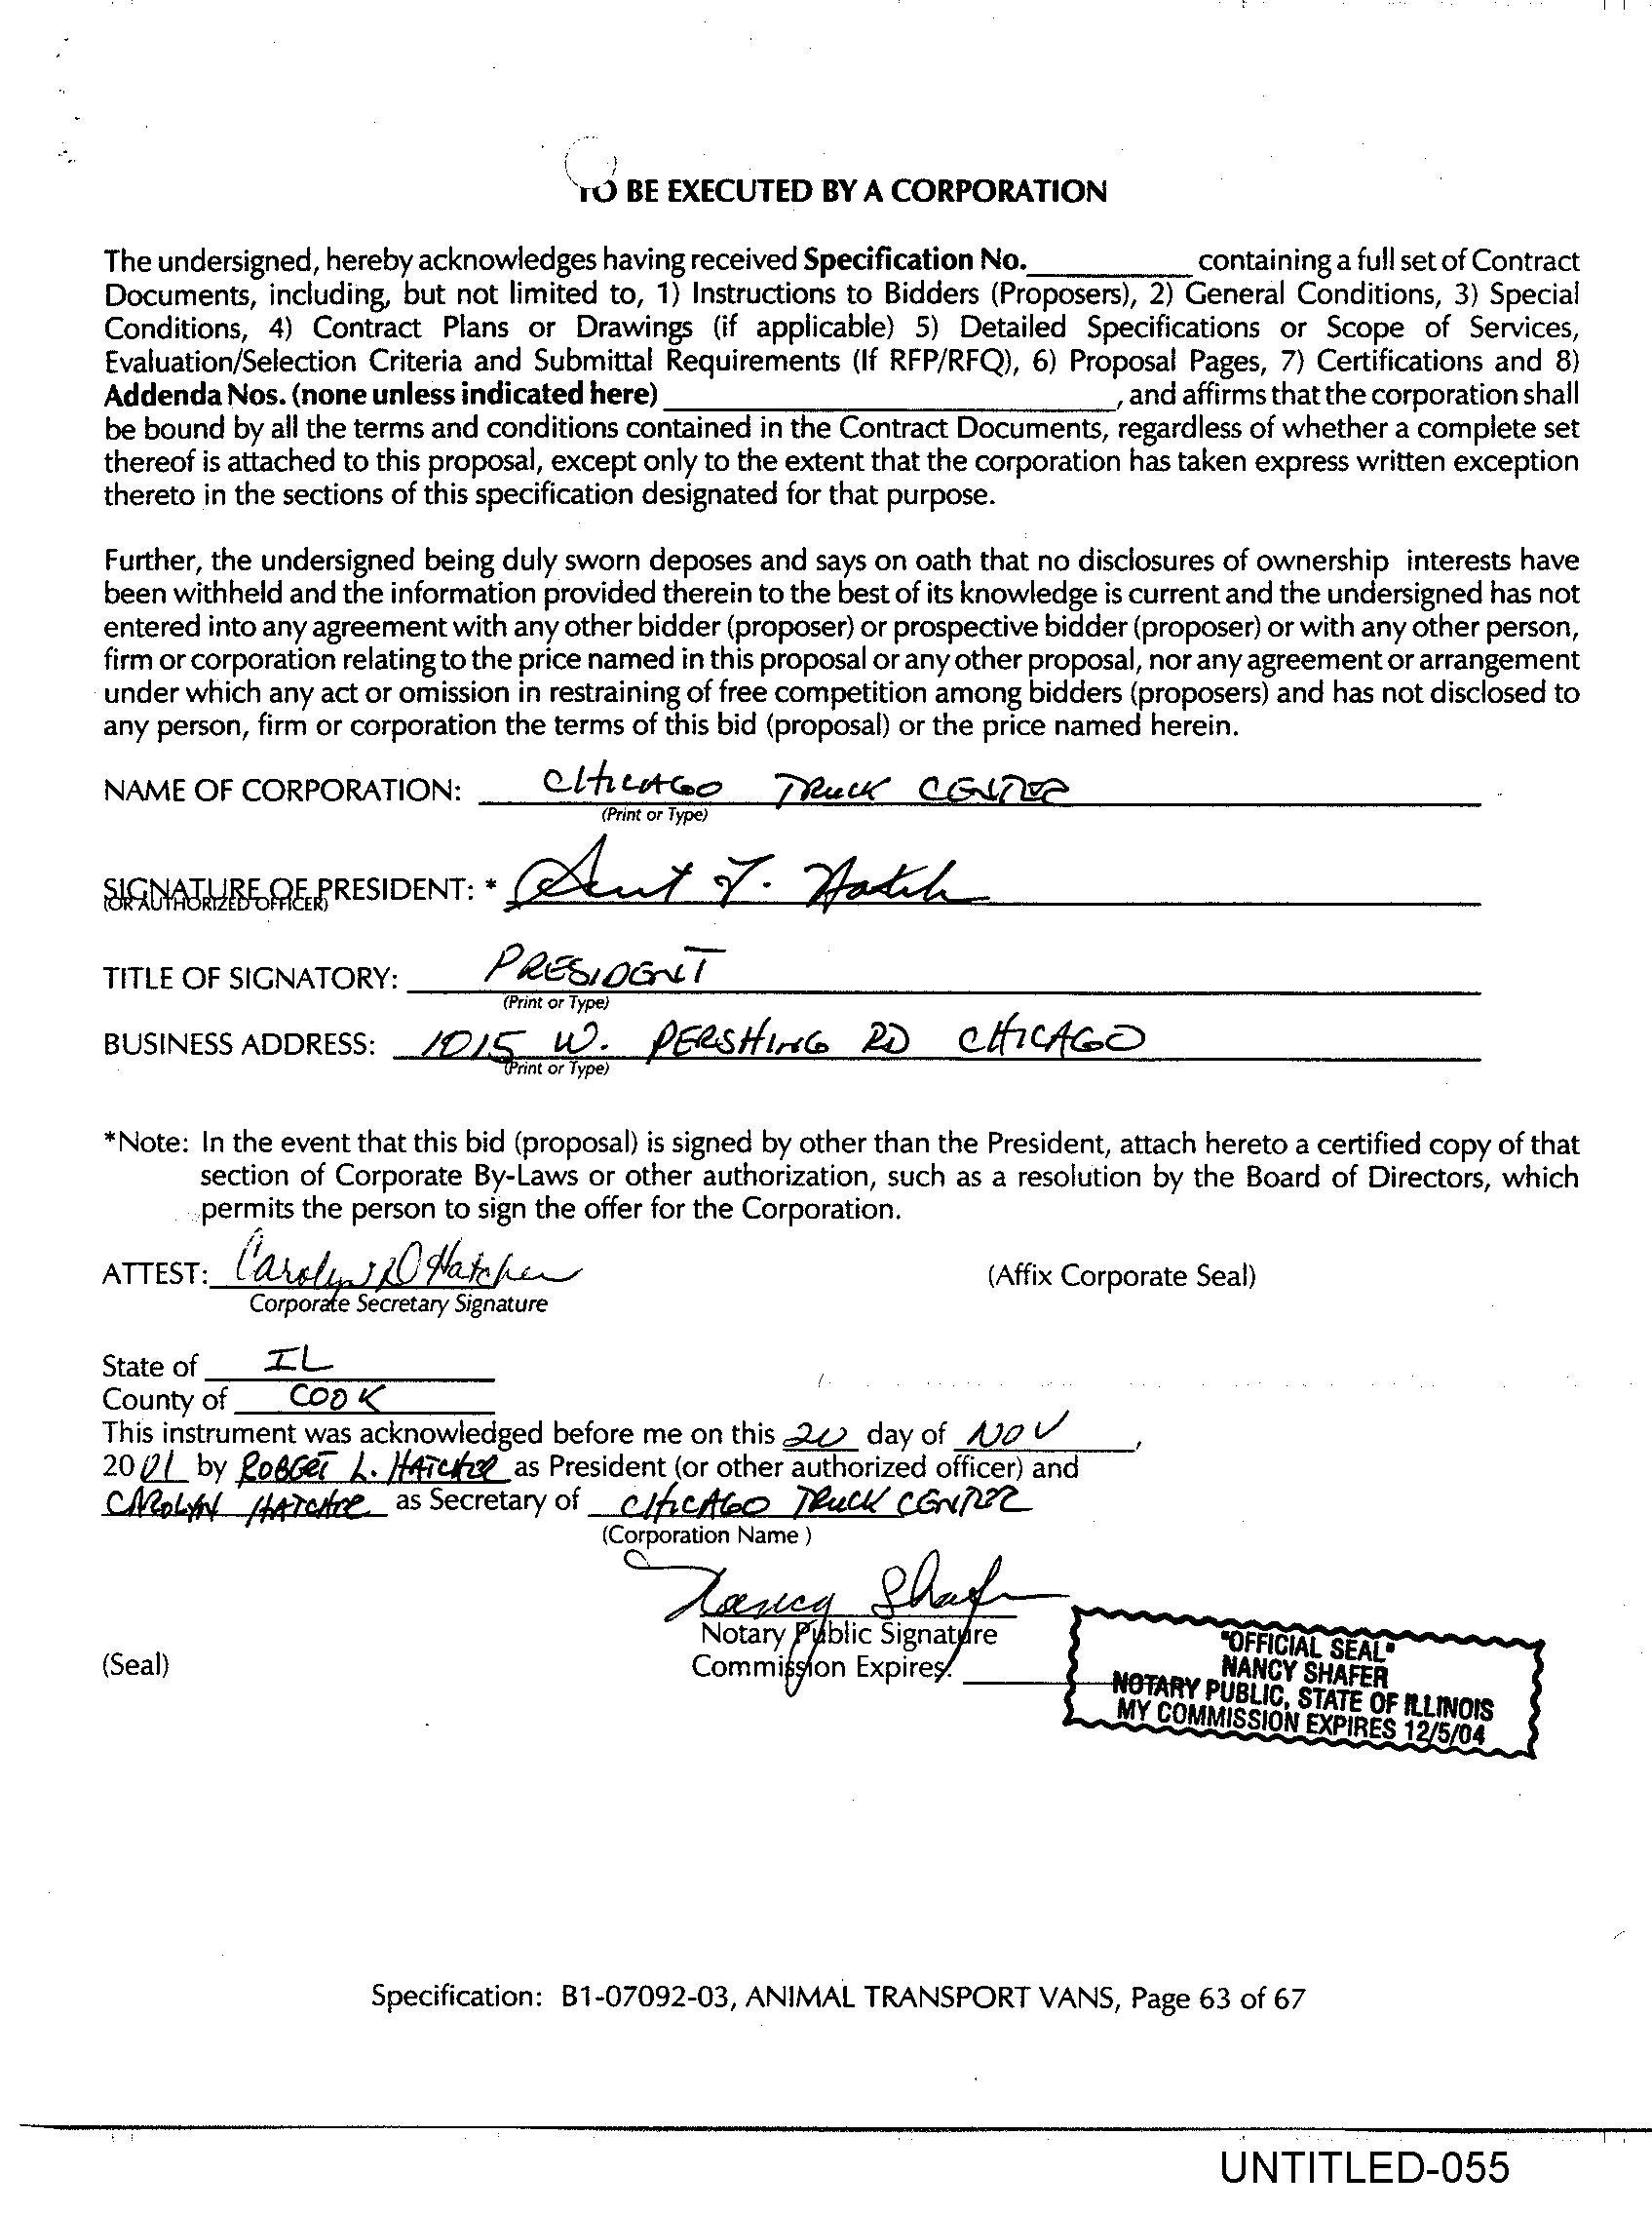 TO BE EXECUTED BY A CORPORATION
The undersigned, hereby acknowledges having received Specification No.____________ containing a full set of Contract
Documents, including, but not limited to, 1) Instructions to Bidders (Proposers), 2) General Conditions, 3) Special
Conditions, 4) Contract Plans or Drawings (if applicable) 5) Detailed Specifications or Scope of Services,
Evaluation/Selection Criteria and Submittal Requirements (If RFP/RFQ), 6) Proposal Pages, 7) Certifications and 8)
Addenda Nos. (none unless indicated here)________________________________, and affirms that the corporation shall
be bound by all the terms and conditions contained in the Contract Documents, regardless of whether a complete set
thereof is attached to this proposal, except only to the extent that the corporation has taken express written exception
thereto in the sections of this specification designated for that purpose.
Further, the undersigned being duly sworn deposes and says on oath that no disclosures of ownership interests have
been withheld and the information provided therein to the best of its knowledge is current and the undersigned has not
entered into any agreement with any other bidder (proposer) or prospective bidder (proposer) or with any other person,
firm or corporation relating to the price named in this proposal or any other proposal, nor any agreement or arrangement
under which any act or omission in restraining of free competition among bidders (proposers) and has not disclosed to
any person, firm or corporation the terms of this bid (proposal) or the price named herein.
NAME OF CORPORATION: CHICAGO TRUCK CENTER
(Print or Type)
SIGNATURE OF PRESIDENT: *
(OR AUTHORIZED OFFICER)
TITLE OF SIGNATORY: PRESIDENT
(Print or Type)
BUSINESS ADDRESS: 1015 W. PERSHING RD CHICAGO
(Print or Type)
*Note: In the event that this bid (proposal) is signed by other than the President, attach hereto a certified copy of that
section of Corporate By-Laws or other authorization, such as a resolution by the Board of Directors, which
permits the person to sign the offer for the Corporation.
ATTEST: Carolyn D Hatcher (Affix Corporate Seal)
Corporate Secretary Signature
State of IL
County of COOK
This instrument was acknowledged before me on this 20 day of NOV,
20 01 by ROBERT L. HATCHER as President (or other authorized officer) and
CAROLYN HATCHER as Secretary of CHICAGO TRUCK CENTER
(Corporation Name )
Nancy Shafer
Notary Public Signature
(Seal) Commission Expires:
"OFFICIAL SEAL"
NANCY SHAFER
NOTARY PUBLIC, STATE OF ILLINOIS
MY COMMISSION EXPIRES 12/5/04
Specification: B1-07092-03, ANIMAL TRANSPORT VANS, Page 63 of 67
UNTITLED-055